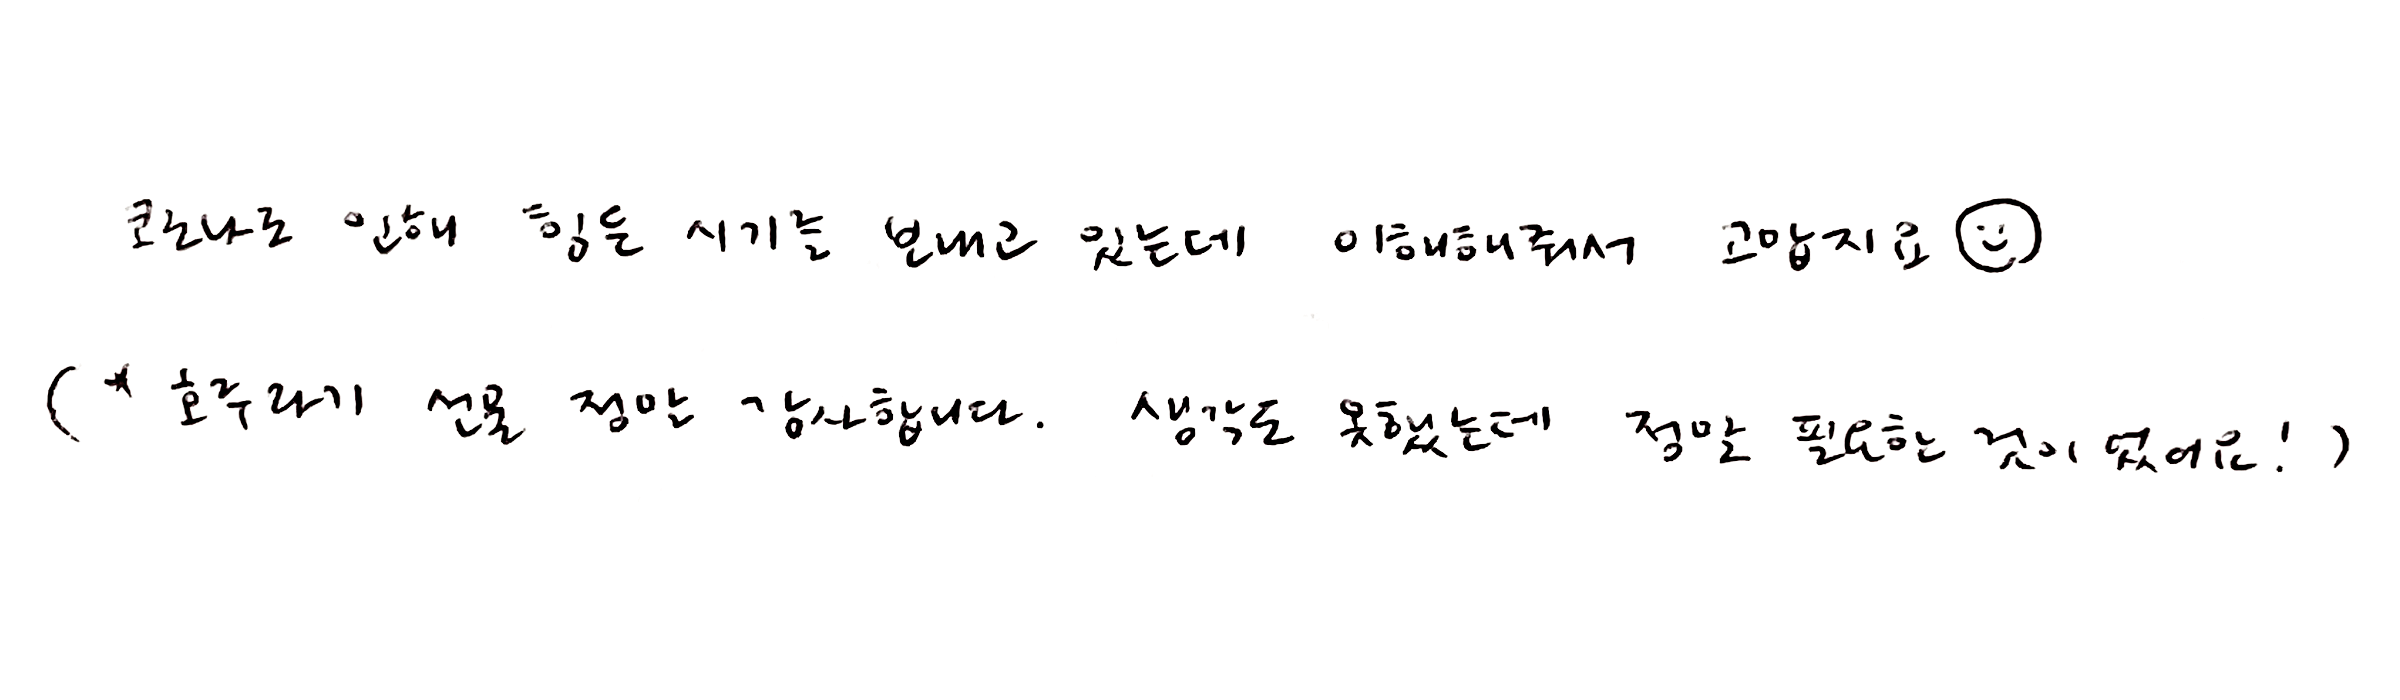 코로나로 인해 힘든 시기를 보내고 있는데 이해해줘서 고맙지요
(* 호루라기 선물 정말 감사합니다. 생각도 못했는데 정말 필요한 것이었어요!)